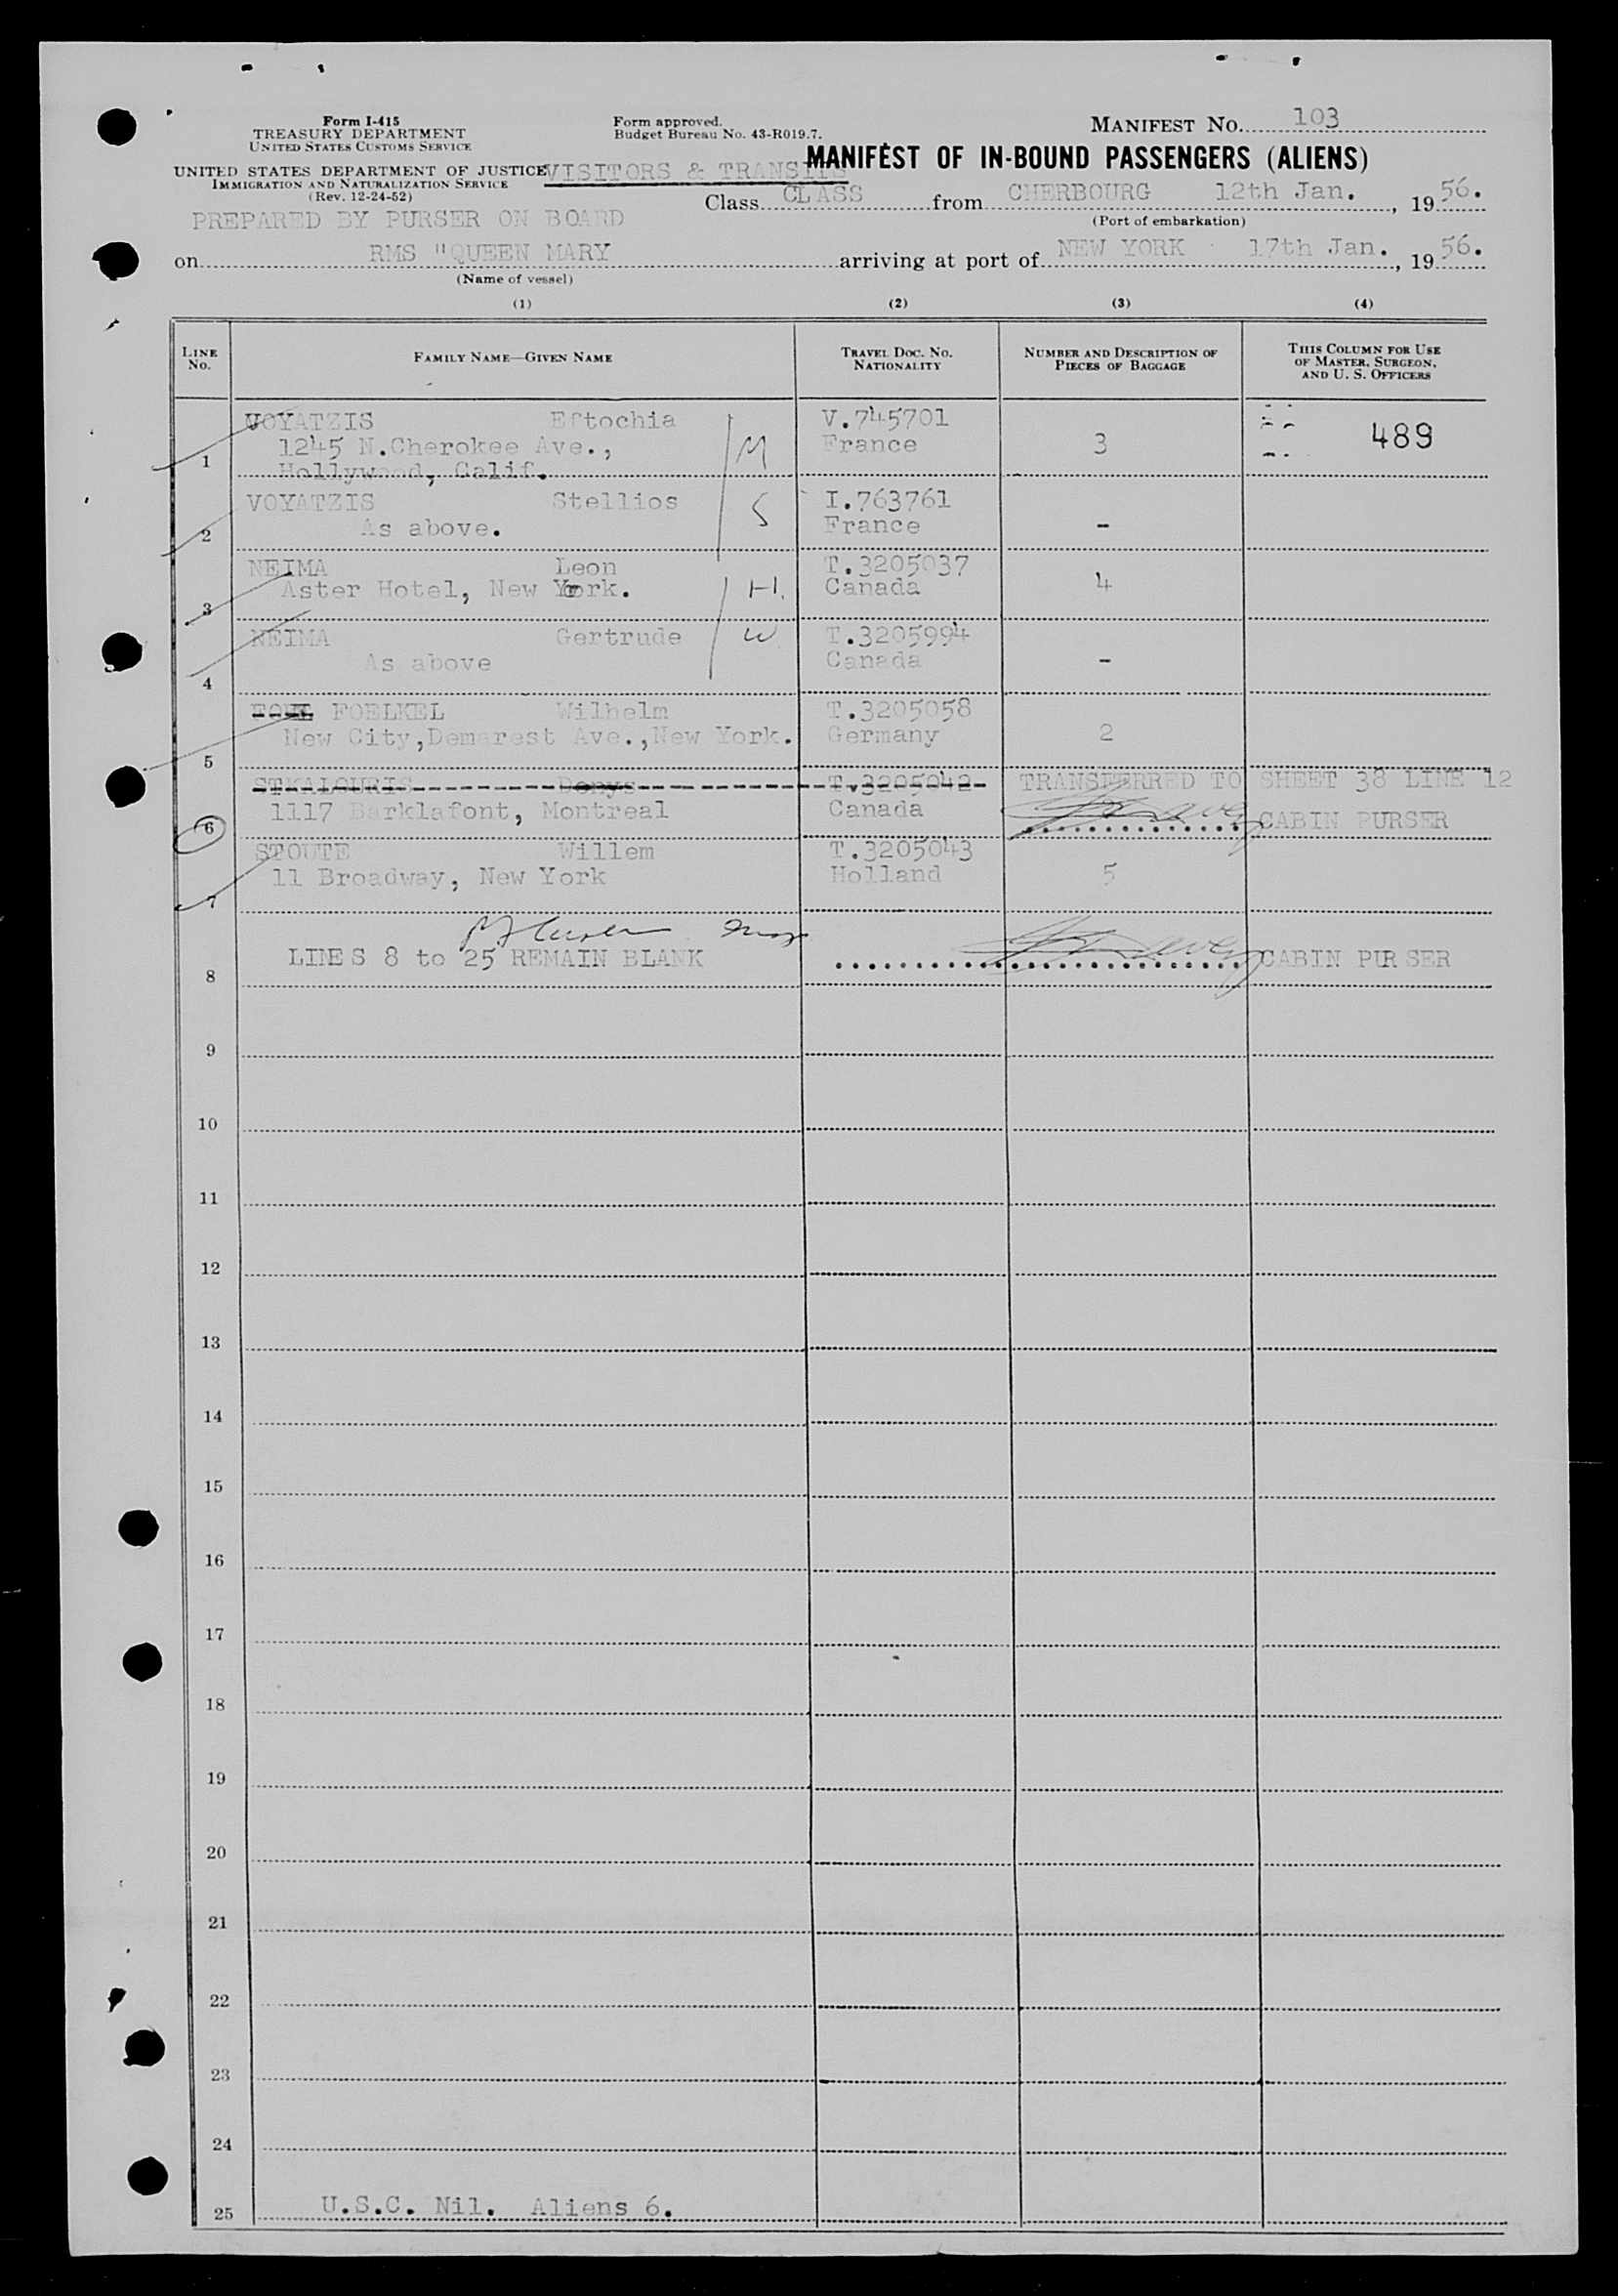 Form I-415
TREASURY DEPARTMENT
UNITED STATES CUSTOMS SERVICE
UNITED STATES DEPARTMENT OF JUSTICE
IMMIGRATION AND NATURALIZATION SERVICE
(Rev. 12-24-52)
Form approved.
Budget Bureau No. 43-R019.7.
MANIFEST NO. 103
VISITORS & TRANSITS
MANIFEST OF IN-BOUND PASSENGERS (ALIENS)
PREPARED BY PURSER ON BOARD
Class CLASS from CHERBOURG 12th Jan. , 19 56.
(Port of embarkation)
on RMS "QUEEN MARY arriving at port of NEW YORK 17th Jan. , 19 56.
(Name of vessel)
(1) (2) (3) (4)
LINE NO.
FAMILY NAME—GIVEN NAME
TRAVEL DOC. NO. NATIONALITY
NUMBER AND DESCRIPTION OF PIECES OF BAGGAGE
THIS COLUMN FOR USE OF MASTER, SURGEON, AND U. S. OFFICERS
VOYATZIS Eftochia V.745701
1 1245 N.Cherokee Ave., M France 3 489
Hollywood, Calif.
VOYATZIS Stellios S I.763761
2 As above. France -
NEIMA Leon T.3205037
3 Aster Hotel, New York. H. Canada 4
NEIMA Gertrude W T.3205994
4 As above Canada -
FOELKEL Wilhelm T.3205058
5 New City,Demarest Ave.,New York. Germany 2
STKALOURIS Denys T.3205042 TRANSFERRED TO SHEET 38 LINE 12
6 1117 Barklafont, Montreal Canada CABIN PURSER
STOUTE Willem T.3205043
7 11 Broadway, New York Holland 5
8 LINES 8 to 25 REMAIN BLANK CABIN PURSER
9
10
11
12
13
14
15
16
17
18
19
20
21
22
23
24
25 U.S.C. Nil. Aliens 6.